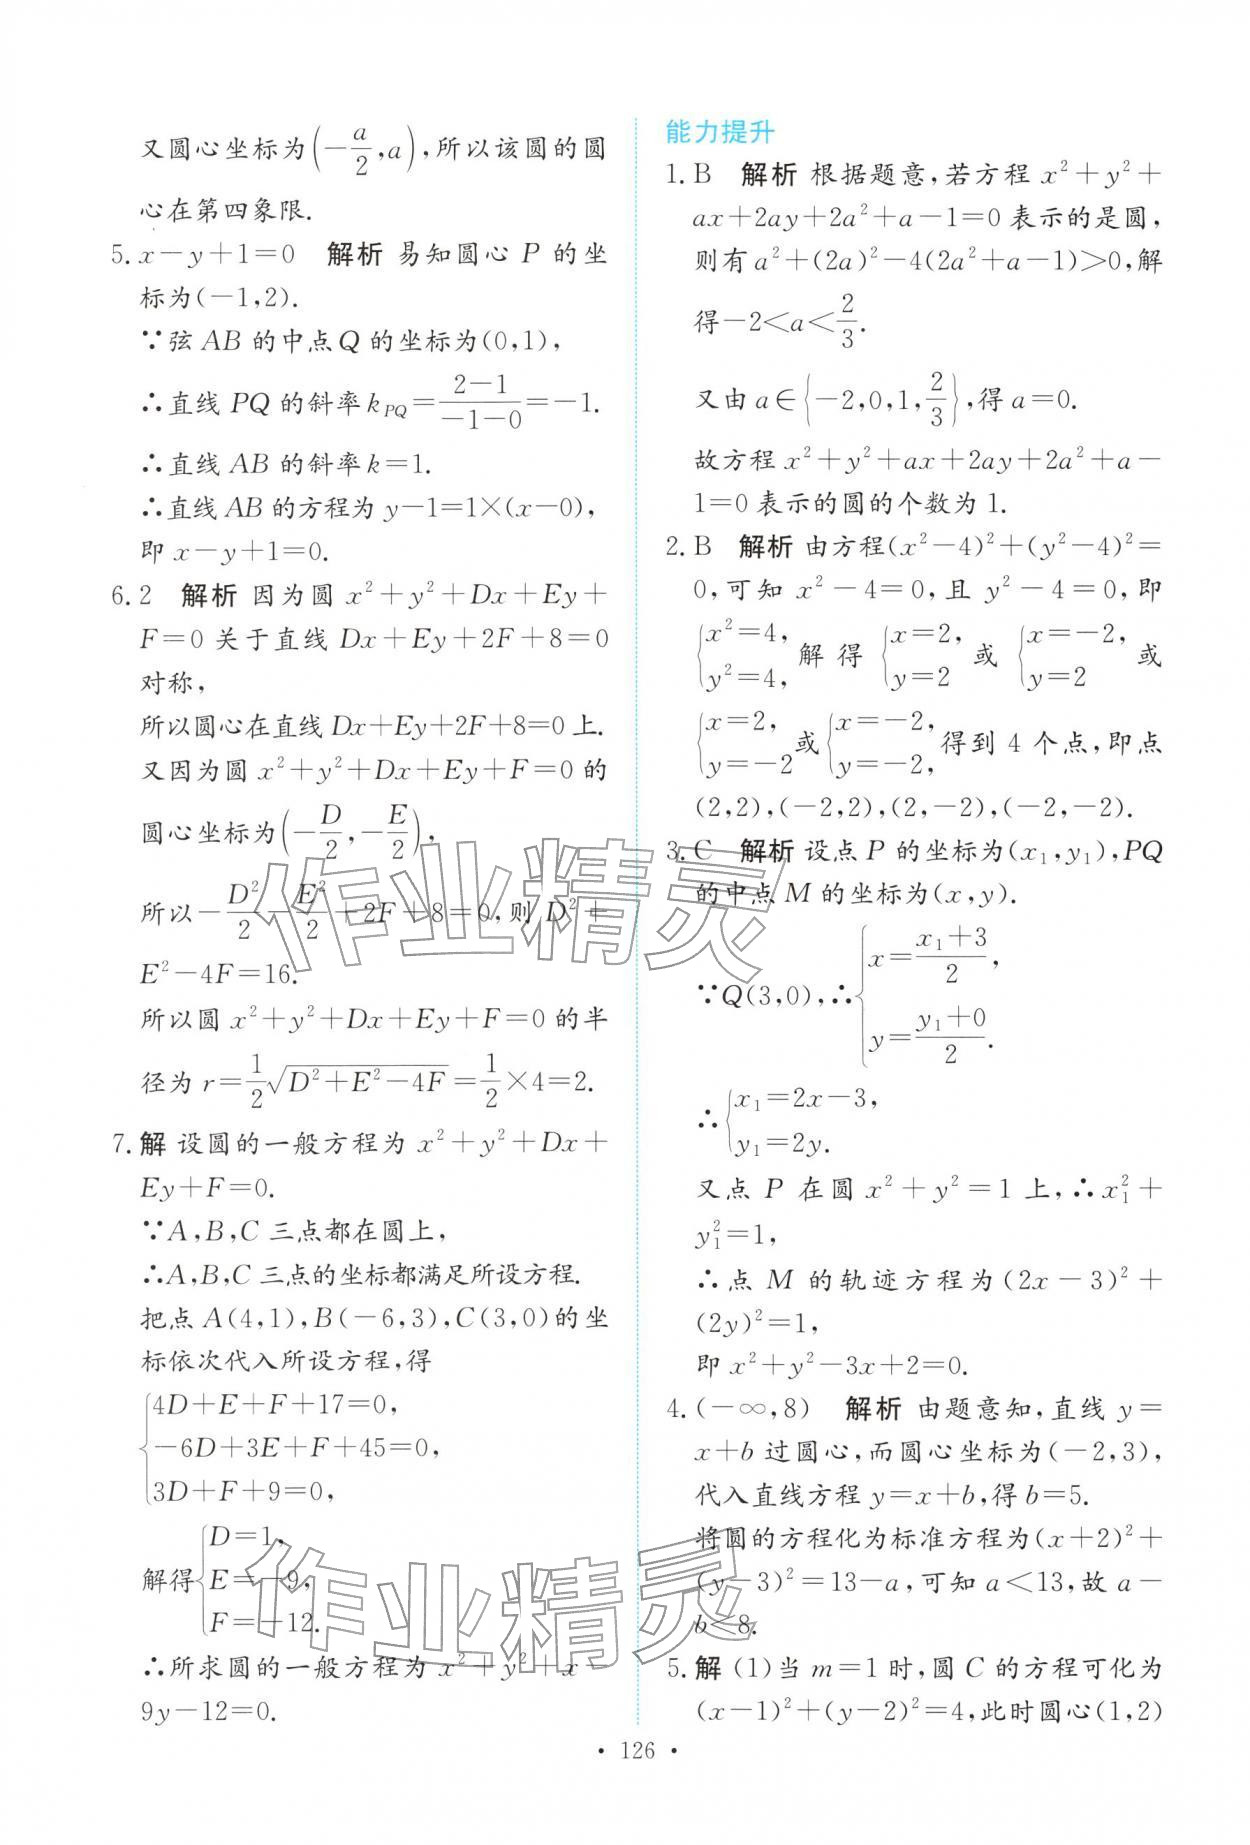 又圆心坐标为(-a/2,a),所以该圆的圆
心在第四象限.
5. x-y+1=0 解析 易知圆心 P 的坐
标为(-1,2).
∵弦 AB 的中点 Q 的坐标为(0,1),
∴直线 PQ 的斜率 k_PQ=(2-1)/(-1-0)=-1.
∴直线 AB 的斜率 k=1.
∴直线 AB 的方程为 y-1=1×(x-0),
即 x-y+1=0.
6. 2 解析 因为圆 x²+y²+Dx+Ey+
F=0 关于直线 Dx+Ey+2F+8=0
对称,
所以圆心在直线 Dx+Ey+2F+8=0 上.
又因为圆 x²+y²+Dx+Ey+F=0 的
圆心坐标为(-D/2,-E/2),
所以-D²/2-E²/2+2F+8=0,则 D²+
E²-4F=16.
所以圆 x²+y²+Dx+Ey+F=0 的半
径为 r=1/2√(D²+E²-4F)=1/2×4=2.
7. 解 设圆的一般方程为 x²+y²+Dx+
Ey+F=0.
∵A,B,C 三点都在圆上,
∴A,B,C 三点的坐标都满足所设方程.
把点 A(4,1),B(-6,3),C(3,0)的坐
标依次代入所设方程,得
{4D+E+F+17=0,
-6D+3E+F+45=0,
3D+F+9=0,
解得{D=1,
E=-9,
F=-12.
∴所求圆的一般方程为 x²+y²+x-
9y-12=0.
能力提升
1. B 解析 根据题意,若方程 x²+y²+
ax+2ay+2a²+a-1=0 表示的是圆,
则有 a²+(2a)²-4(2a²+a-1)>0,解
得-2<a<2/3.
又由 a∈{-2,0,1,2/3},得 a=0.
故方程 x²+y²+ax+2ay+2a²+a-
1=0 表示的圆的个数为 1.
2. B 解析 由方程(x²-4)²+(y²-4)²=
0,可知 x²-4=0,且 y²-4=0,即
{x²=4, y²=4, 解得 {x=2, y=2 或 {x=-2, y=2 或
{x=2, y=-2 或 {x=-2, y=-2, 得到 4 个点,即点
(2,2),(-2,2),(2,-2),(-2,-2).
3. C 解析 设点 P 的坐标为(x₁,y₁),PQ
的中点 M 的坐标为(x,y).
∵Q(3,0),∴{x=(x₁+3)/2,
y=(y₁+0)/2.
∴{x₁=2x-3,
y₁=2y.
又点 P 在圆 x²+y²=1 上,∴x₁²+
y₁²=1,
∴点 M 的轨迹方程为(2x-3)²+
(2y)²=1,
即 x²+y²-3x+2=0.
4. (-∞,8) 解析 由题意知,直线 y=
x+b 过圆心,而圆心坐标为(-2,3),
代入直线方程 y=x+b,得 b=5.
将圆的方程化为标准方程为(x+2)²+
(y-3)²=13-a,可知 a<13,故 a-
b<8.
5. 解 (1)当 m=1 时,圆 C 的方程可化为
(x-1)²+(y-2)²=4,此时圆心(1,2)
• 126 •
作业精灵
作业精灵